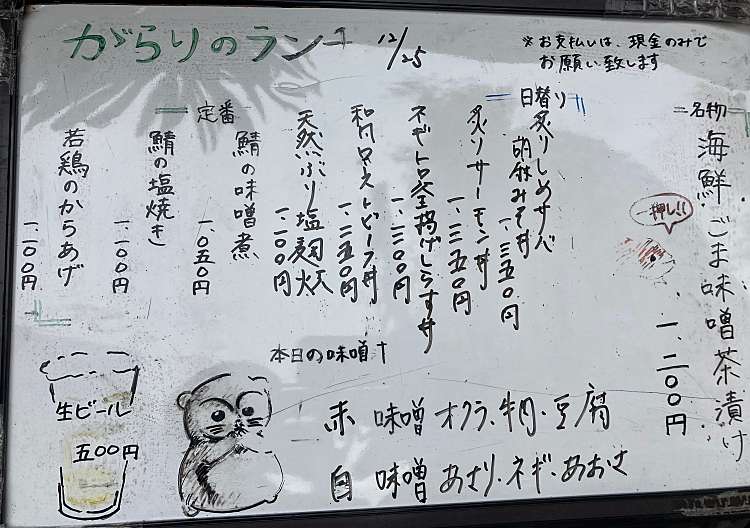 がらりのランチ 12/25
※お支払いは、現金のみで
お願い致します
名物
海鮮ごま味噌茶漬け
一、二〇〇円
一押し!!
日替り
炙りしめサバ
胡麻みそ丼
一、三五〇円
炙りサーモン丼
一、三五〇円
ネギトロ釜揚げしらす丼
一、三〇〇円
和風ローストビーフ丼
一、三五〇円
天然ぶり塩麹焼
一、一〇〇円
定番
鯖の味噌煮
一、〇五〇円
鯖の塩焼き
一、一〇〇円
若鶏のからあげ
一、一〇〇円
本日の味噌汁
赤 味噌 オクラ、牛肉・豆腐
白 味噌 あさり・ネギ・あおさ
生ビール
五〇〇円